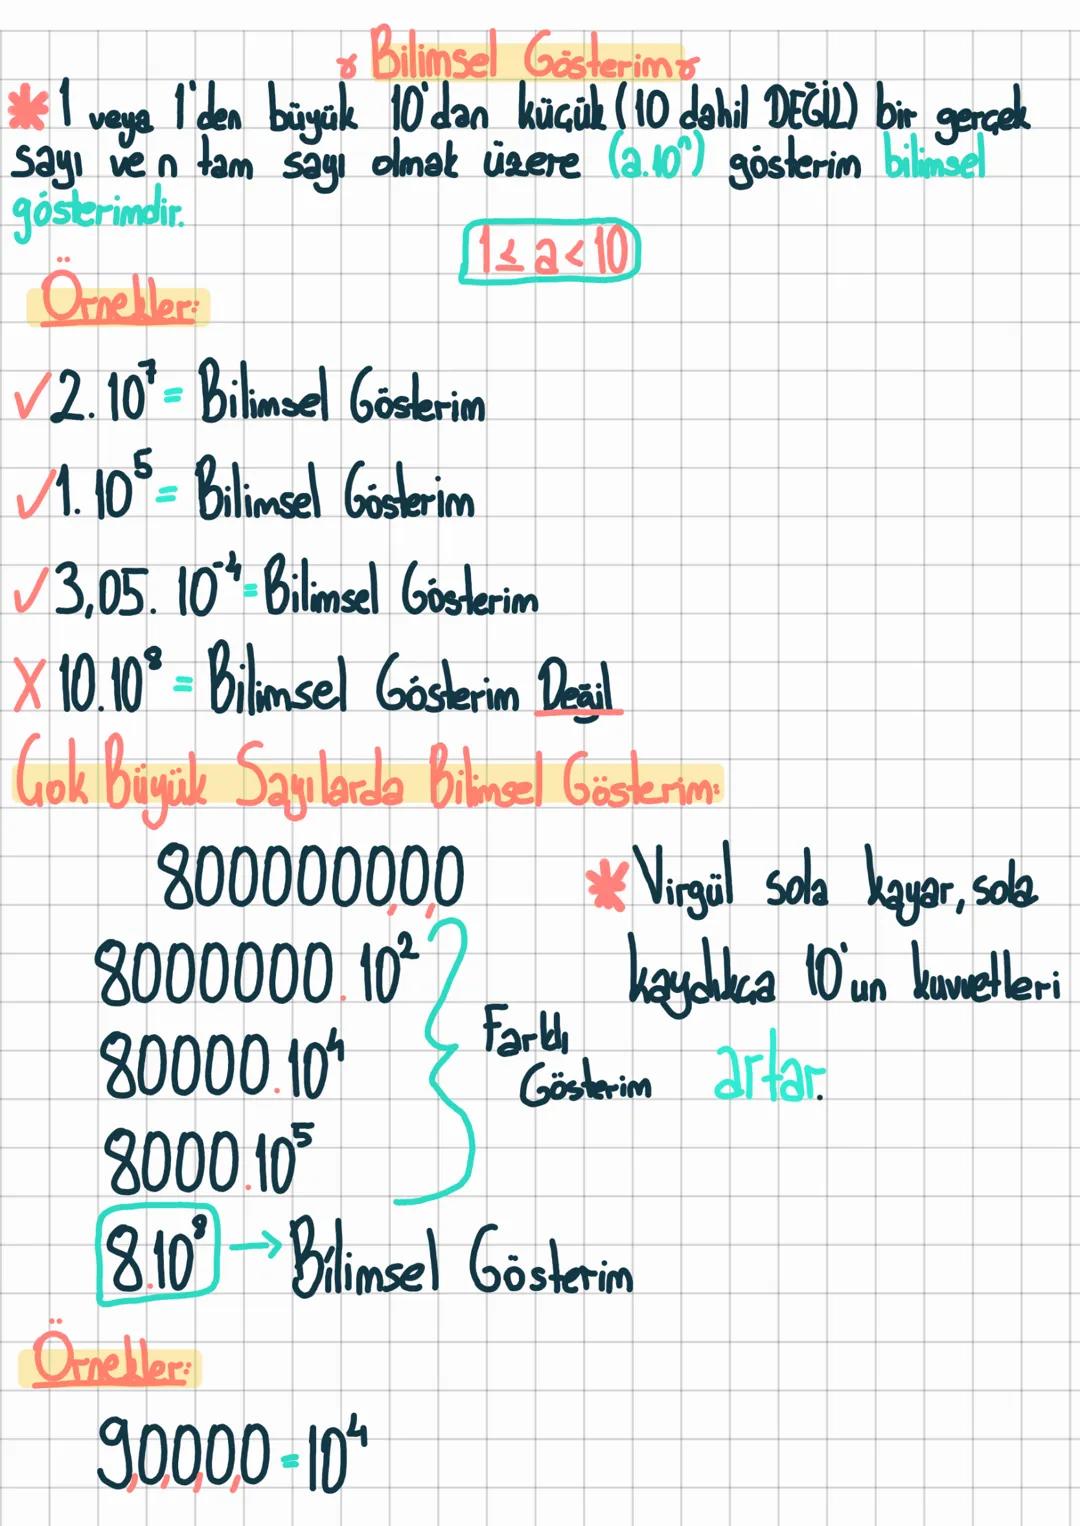 Bilimsel Gösterim
1 veya 1'den büyük 10'dan küçük (10 dahil DEĞİL) bir gerçek
sayı ve n tam sayı olmak üzere (a.10ⁿ) gösterim bilimsel
gösterimdir.
1 ≤ a < 10
Örnekler:
✓ 2.10⁷ = Bilimsel Gösterim
✓ 1.10⁵ = Bilimsel Gösterim
✓ 3,05.10⁻⁴ = Bilimsel Gösterim
X 10.10⁸ = Bilimsel Gösterim Değil
Çok Büyük Sayılarda Bilimsel Gösterim:
800000000
8000000.10²
80000.10⁴
8000.10⁵
Farklı
Gösterim
* Virgül sola kayar, sola
kaydıkça 10'un kuvvetleri
artar.
8.10⁸ → Bilimsel Gösterim
Örnekler:
9,0,0,0,0 = 10⁴